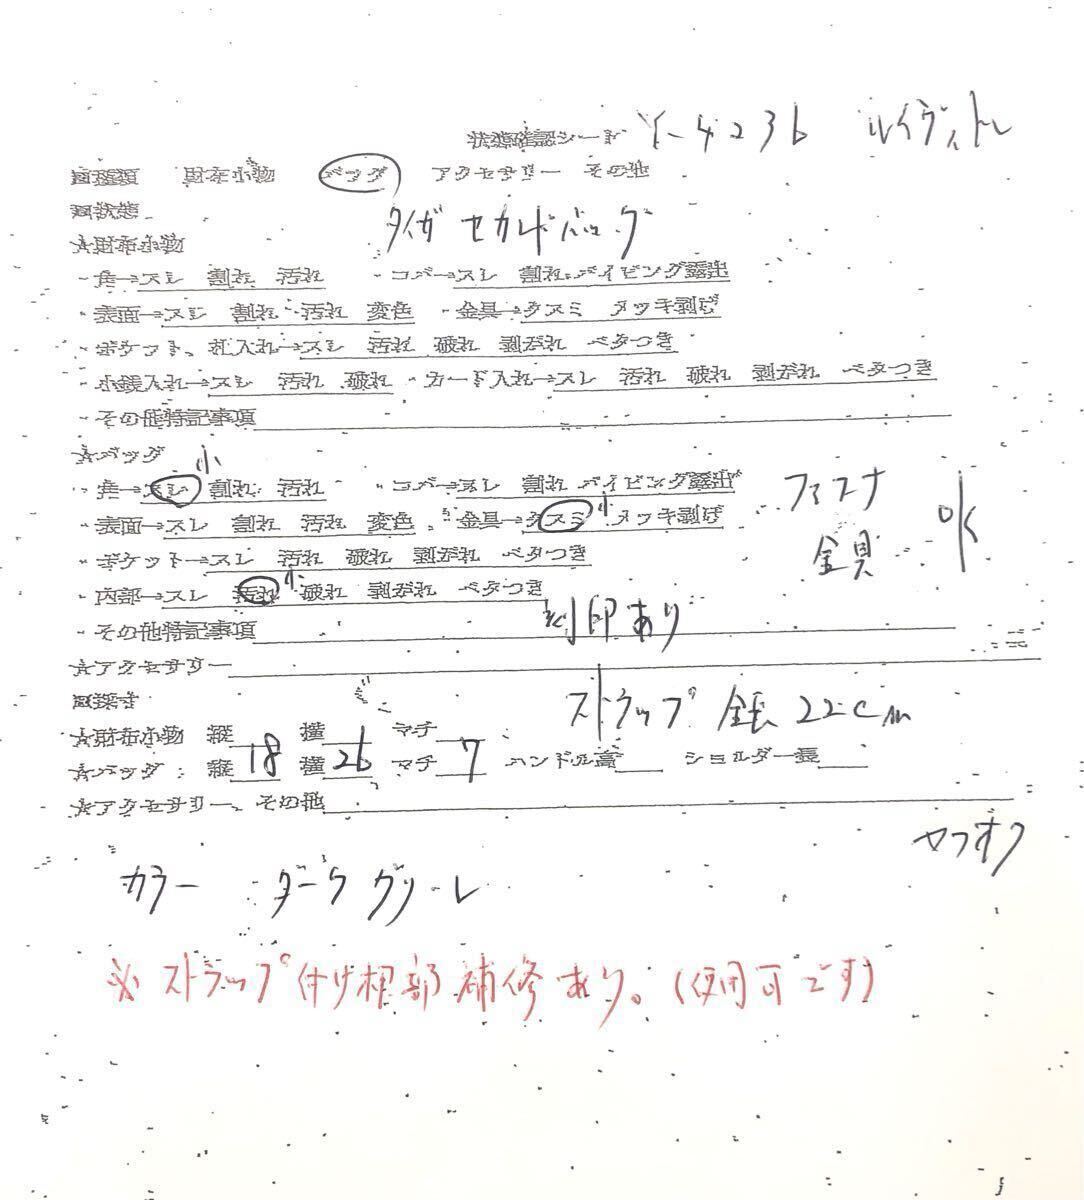 状態確認シート Y-4236 ルイヴィトン
□種類 財布小物 バッグ アクセサリー その他
□状態
タイガ セカンドバッグ
☆財布小物
・角→スレ 割れ 汚れ ・コバ→スレ 割れ パイピング露出
・表面→スレ 割れ 汚れ 変色 ・金具→クスミ メッキ剥げ
・ポケット、札入れ→スレ 汚れ 破れ 剥がれ ベタつき
・小銭入れ→スレ 汚れ 破れ ・カード入れ→スレ 汚れ 破れ 剥がれ ベタつき
・その他特記事項
☆バッグ
小
・角→スレ 割れ 汚れ ・コバ→スレ 割れ パイピング露出
ファスナ
・表面→スレ 割れ 汚れ 変色 ・金具→クスミ 小 メッキ剥げ
金具 OK
・ポケット→スレ 汚れ 破れ 剥がれ ベタつき
・内部→スレ 汚れ 小 破れ 剥がれ ベタつき
・その他特記事項 刻印あり
☆アクセサリー
□採寸
ストラップ 全長 22cm
☆財布小物 縦 横 マチ
☆バッグ 縦 18 横 26 マチ 7 ハンドル高 ショルダー長
☆アクセサリー、その他
ヤフオク
カラー ダークグリーン
※ストラップ付け根部補修あり。(使用可です)